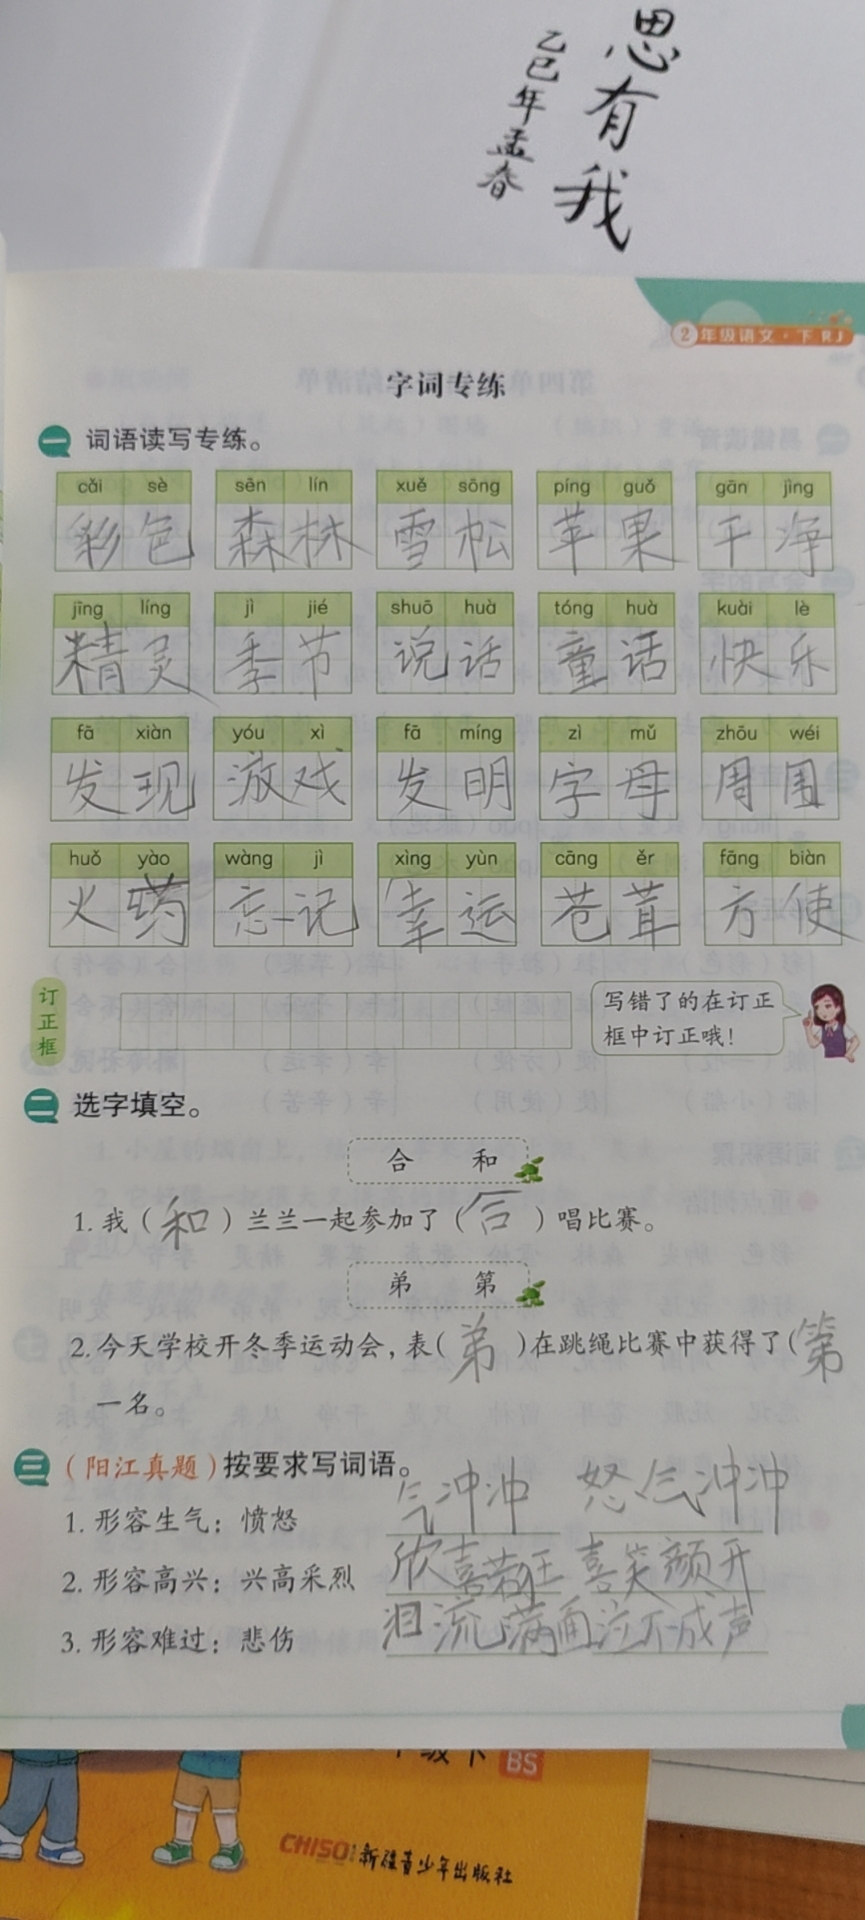 思有我
乙巳年孟春
2年级语文·下 RJ
字词专练
一 词语读写专练。
cǎi sè sēn lín xuě sōng píng guǒ gān jìng
彩色 森林 雪松 苹果 干净
jīng líng jì jié shuō huà tóng huà kuài lè
精灵 季节 说话 童话 快乐
fā xiàn yóu xì fā míng zì mǔ zhōu wéi
发现 游戏 发明 字母 周围
huǒ yào wàng jì xìng yùn cāng ěr fāng biàn
火药 忘记 幸运 苍茸 方使
订正框
写错了的在订正
框中订正哦！
二 选字填空。
合 和
1. 我（和）兰兰一起参加了（合）唱比赛。
弟 第
2. 今天学校开冬季运动会，表（弟）在跳绳比赛中获得了（第
一名。
三（阳江真题）按要求写词语。
1. 形容生气：愤怒 气冲冲 怒气冲冲
2. 形容高兴：兴高采烈 欣喜若狂 喜笑颜开
3. 形容难过：悲伤 泪流满面 泣不成声
年级下
BS
CHISO 新疆青少年出版社